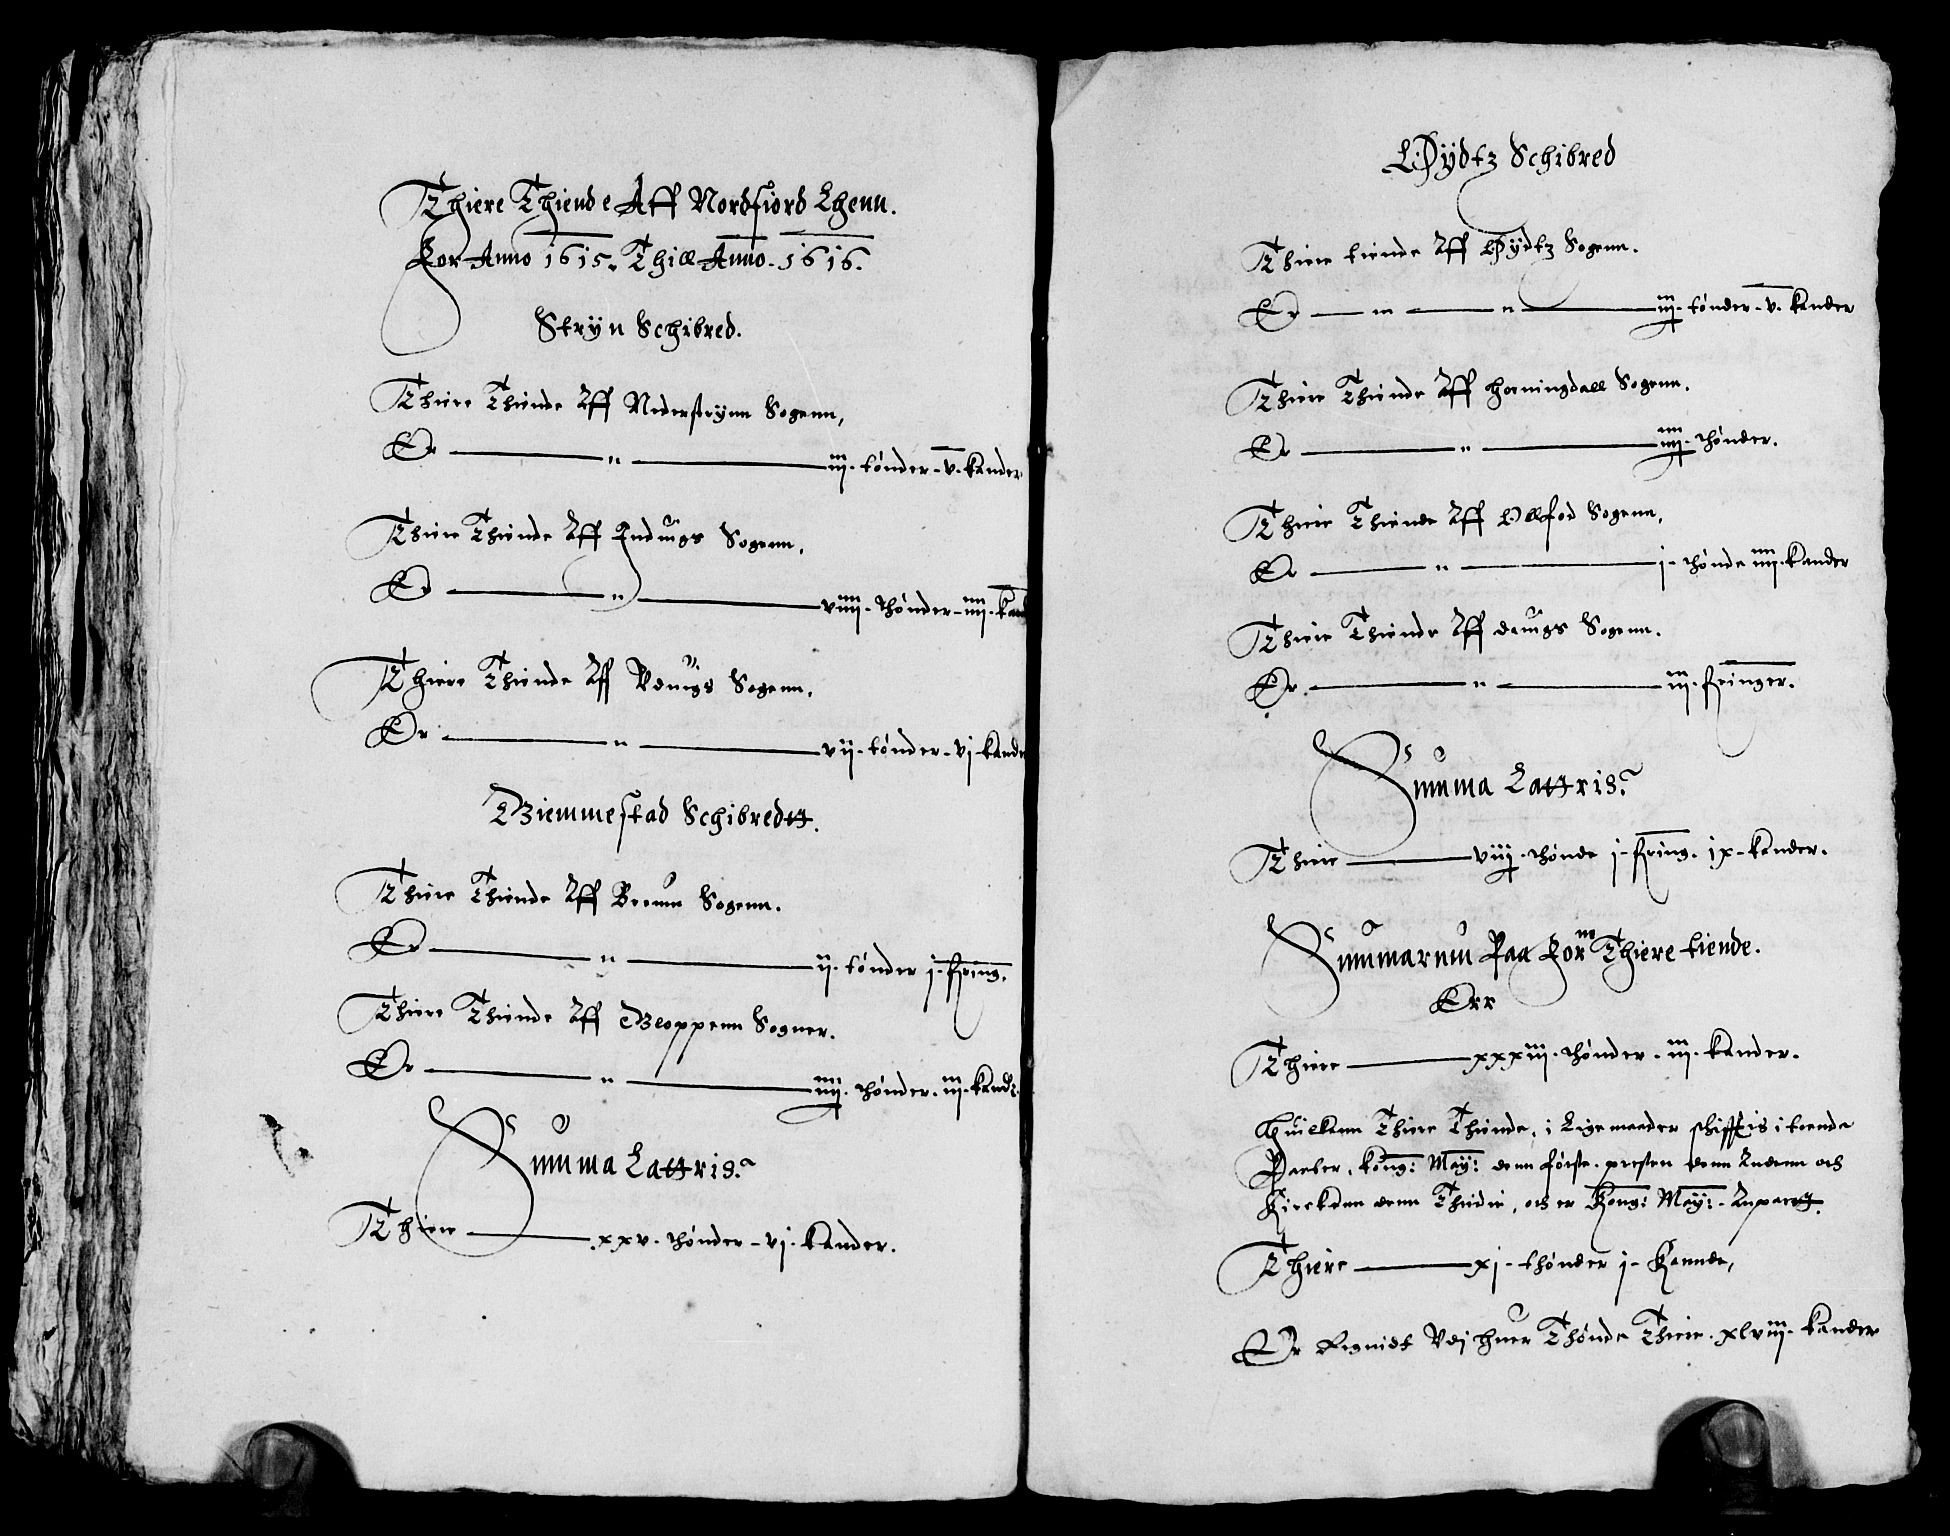 Thiere Thiende Aff Nordfiord Lhenn.
For Anno 1615. Thill Anno. 1616.
Strÿn Schibred.
Thiere Thiende Aff Nederstrÿnn Sogenn,
Er — " — iij. tønder - v. kander
Thiere Thiende Aff Induigs Sogenn,
Er — " — viiij. thønder - iiij. kand
Thiere Thiende Aff Sogenn,
Er — " — vij - tønder - vj - kande
Giemmestad Schibredtt.
Thiere Thiende Aff Breum Sogenn.
Er — " — ij. tønder j - fring.
Thiere Thiende Aff Gloppenn Sogner.
Er — " — iiij. thønder. iij. kand
Summa Lattris.
Thiere — xxv. thønder - vj. kander.
Øÿdtz Schibred
Thiere tiende Aff Øÿdtz Sogenn.
Er — " — " — iij. tønder - v. kander
Thiere Thiende Aff Horningdall Sogenn.
Er — " — iiij. thønder.
Thiere Thiende Aff Ollfod Sogenn,
Er — " — j - thønde iiij. kander
Thiere Thiende Aff dauigs Sogenn.
Er — " — iij. fringer.
Summa Lattris.
Thiere — viij. thønde j - fring. ix - kander.
Summarum Paa For^ne Thiere tiende.
Err
Thiere — xxxiij. thønder. iij. kander.
Huilkenn Thiere Thiende, i Lige maader schifftis i trende
Parter, kong: Maÿ: denn første. presten denn Anden och
Kirckenn denn Thredie, och er Kong: Maÿ: Anpartt.
Thiere — xj - thønder j - Kannde,
Er Regnidt Vdj huer Thønde Thiere. xlviij. kander